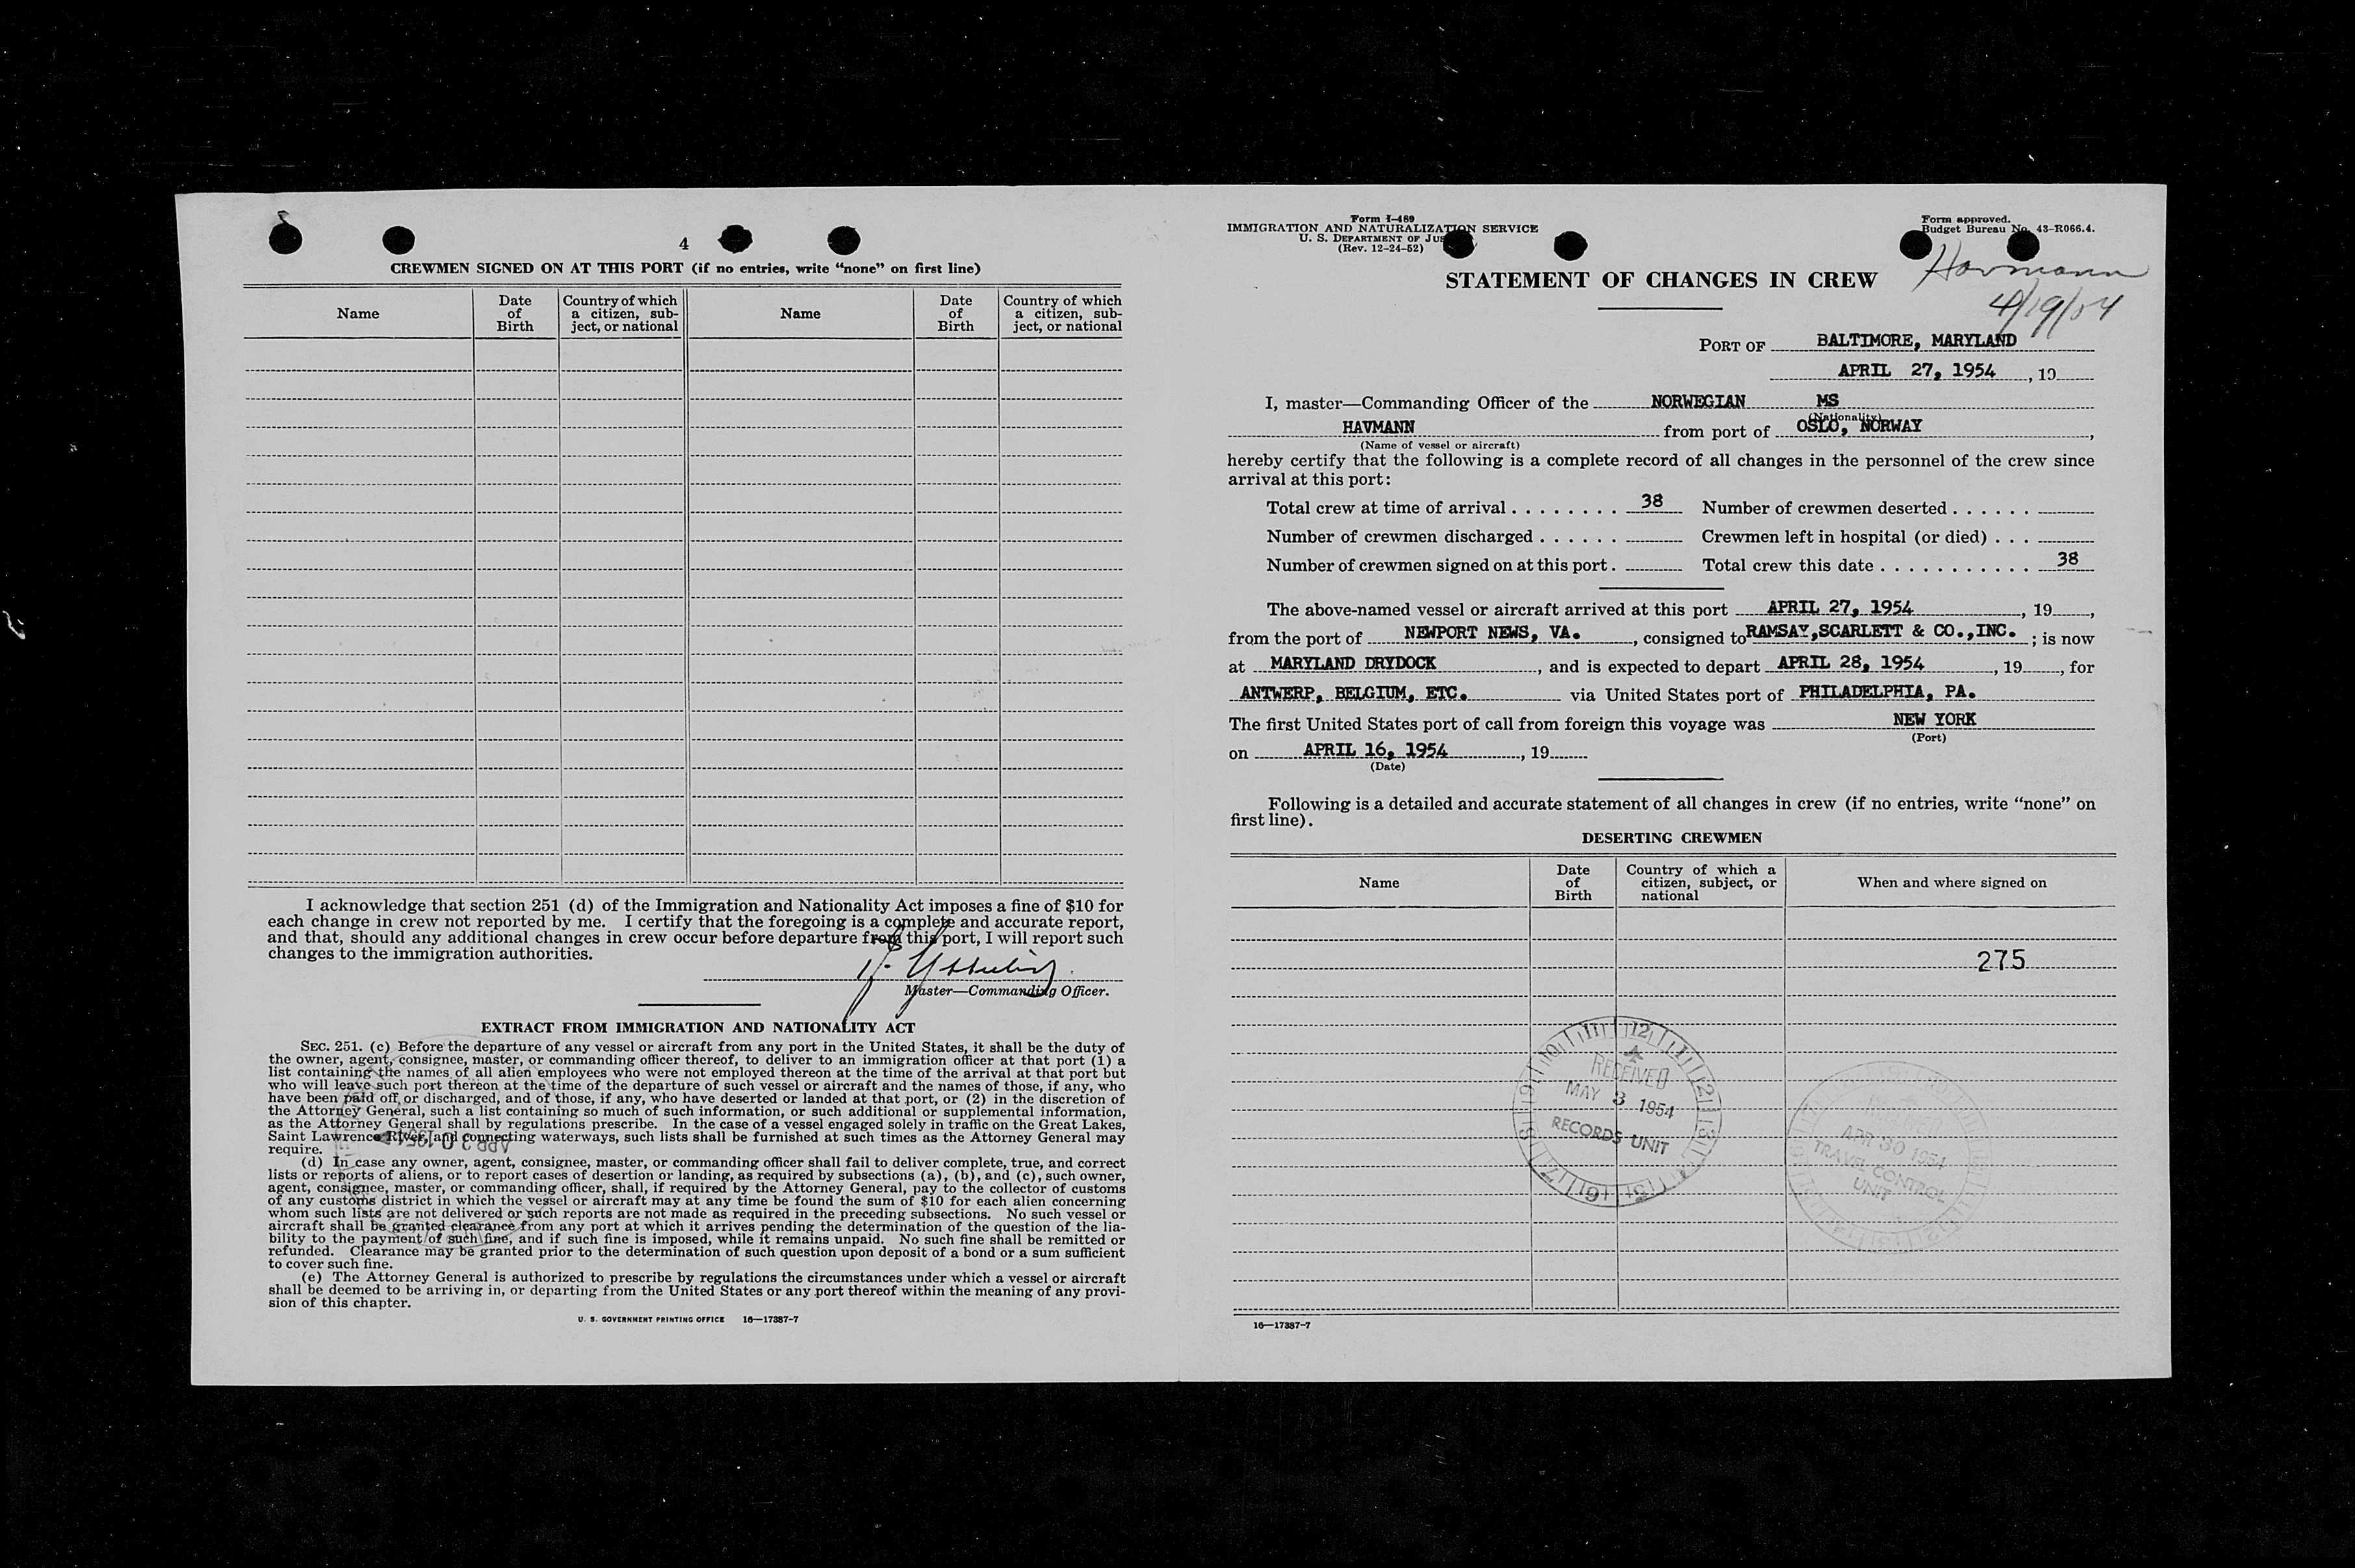 4
CREWMEN SIGNED ON AT THIS PORT (if no entries, write “none” on first line)
Name
Date of Birth
Country of which a citizen, subject, or national
Name
Date of Birth
Country of which a citizen, subject, or national
I acknowledge that section 251 (d) of the Immigration and Nationality Act imposes a fine of $10 for
each change in crew not reported by me. I certify that the foregoing is a complete and accurate report,
and that, should any additional changes in crew occur before departure from this port, I will report such
changes to the immigration authorities.
Master—Commanding Officer.
EXTRACT FROM IMMIGRATION AND NATIONALITY ACT
SEC. 251. (c) Before the departure of any vessel or aircraft from any port in the United States, it shall be the duty of
the owner, agent, consignee, master, or commanding officer thereof, to deliver to an immigration officer at that port (1) a
list containing the names of all alien employees who were not employed thereon at the time of the arrival at that port but
who will leave such port thereon at the time of the departure of such vessel or aircraft and the names of those, if any, who
have been paid off or discharged, and of those, if any, who have deserted or landed at that port, or (2) in the discretion of
the Attorney General, such a list containing so much of such information, or such additional or supplemental information,
as the Attorney General shall by regulations prescribe. In the case of a vessel engaged solely in traffic on the Great Lakes,
Saint Lawrence River, and connecting waterways, such lists shall be furnished at such times as the Attorney General may
require.
APR 30 1954
(d) In case any owner, agent, consignee, master, or commanding officer shall fail to deliver complete, true, and correct
lists or reports of aliens, or to report cases of desertion or landing, as required by subsections (a), (b), and (c), such owner,
agent, consignee, master, or commanding officer, shall, if required by the Attorney General, pay to the collector of customs
of any customs district in which the vessel or aircraft may at any time be found the sum of $10 for each alien concerning
whom such lists are not delivered or such reports are not made as required in the preceding subsections. No such vessel or
aircraft shall be granted clearance from any port at which it arrives pending the determination of the question of the lia-
bility to the payment of such fine, and if such fine is imposed, while it remains unpaid. No such fine shall be remitted or
refunded. Clearance may be granted prior to the determination of such question upon deposit of a bond or a sum sufficient
to cover such fine.
(e) The Attorney General is authorized to prescribe by regulations the circumstances under which a vessel or aircraft
shall be deemed to be arriving in, or departing from the United States or any port thereof within the meaning of any provi-
sion of this chapter.
U. S. GOVERNMENT PRINTING OFFICE 16—17387-7
Form I-489
IMMIGRATION AND NATURALIZATION SERVICE
U. S. DEPARTMENT OF JUS
(Rev. 12-24-52)
Form approved.
Budget Bureau No. 43-R066.4.
STATEMENT OF CHANGES IN CREW
Havmann
4/19/54
PORT OF BALTIMORE, MARYLAND
APRIL 27, 1954, 19
I, master—Commanding Officer of the NORWEGIAN MS
(Nationality)
HAVMANN from port of OSLO, NORWAY,
(Name of vessel or aircraft)
hereby certify that the following is a complete record of all changes in the personnel of the crew since
arrival at this port:
Total crew at time of arrival . . . . . . . . 38 Number of crewmen deserted . . . . . .
Number of crewmen discharged . . . . . . Crewmen left in hospital (or died) . . .
Number of crewmen signed on at this port . Total crew this date . . . . . . . . . . . 38
The above-named vessel or aircraft arrived at this port APRIL 27, 1954, 19,
from the port of NEWPORT NEWS, VA., consigned to RAMSAY,SCARLETT & CO.,INC. ; is now
at MARYLAND DRYDOCK, and is expected to depart APRIL 28, 1954, 19, for
ANTWERP, BELGIUM, ETC. via United States port of PHILADELPHIA, PA.
The first United States port of call from foreign this voyage was NEW YORK
(Port)
on APRIL 16, 1954, 19
(Date)
Following is a detailed and accurate statement of all changes in crew (if no entries, write “none” on
first line).
DESERTING CREWMEN
Name
Date of Birth
Country of which a citizen, subject, or national
When and where signed on
275
RECEIVED
MAY 3 1954
RECORDS UNIT
APR 30 1954
TRAVEL CONTROL
UNIT
16—17387-7